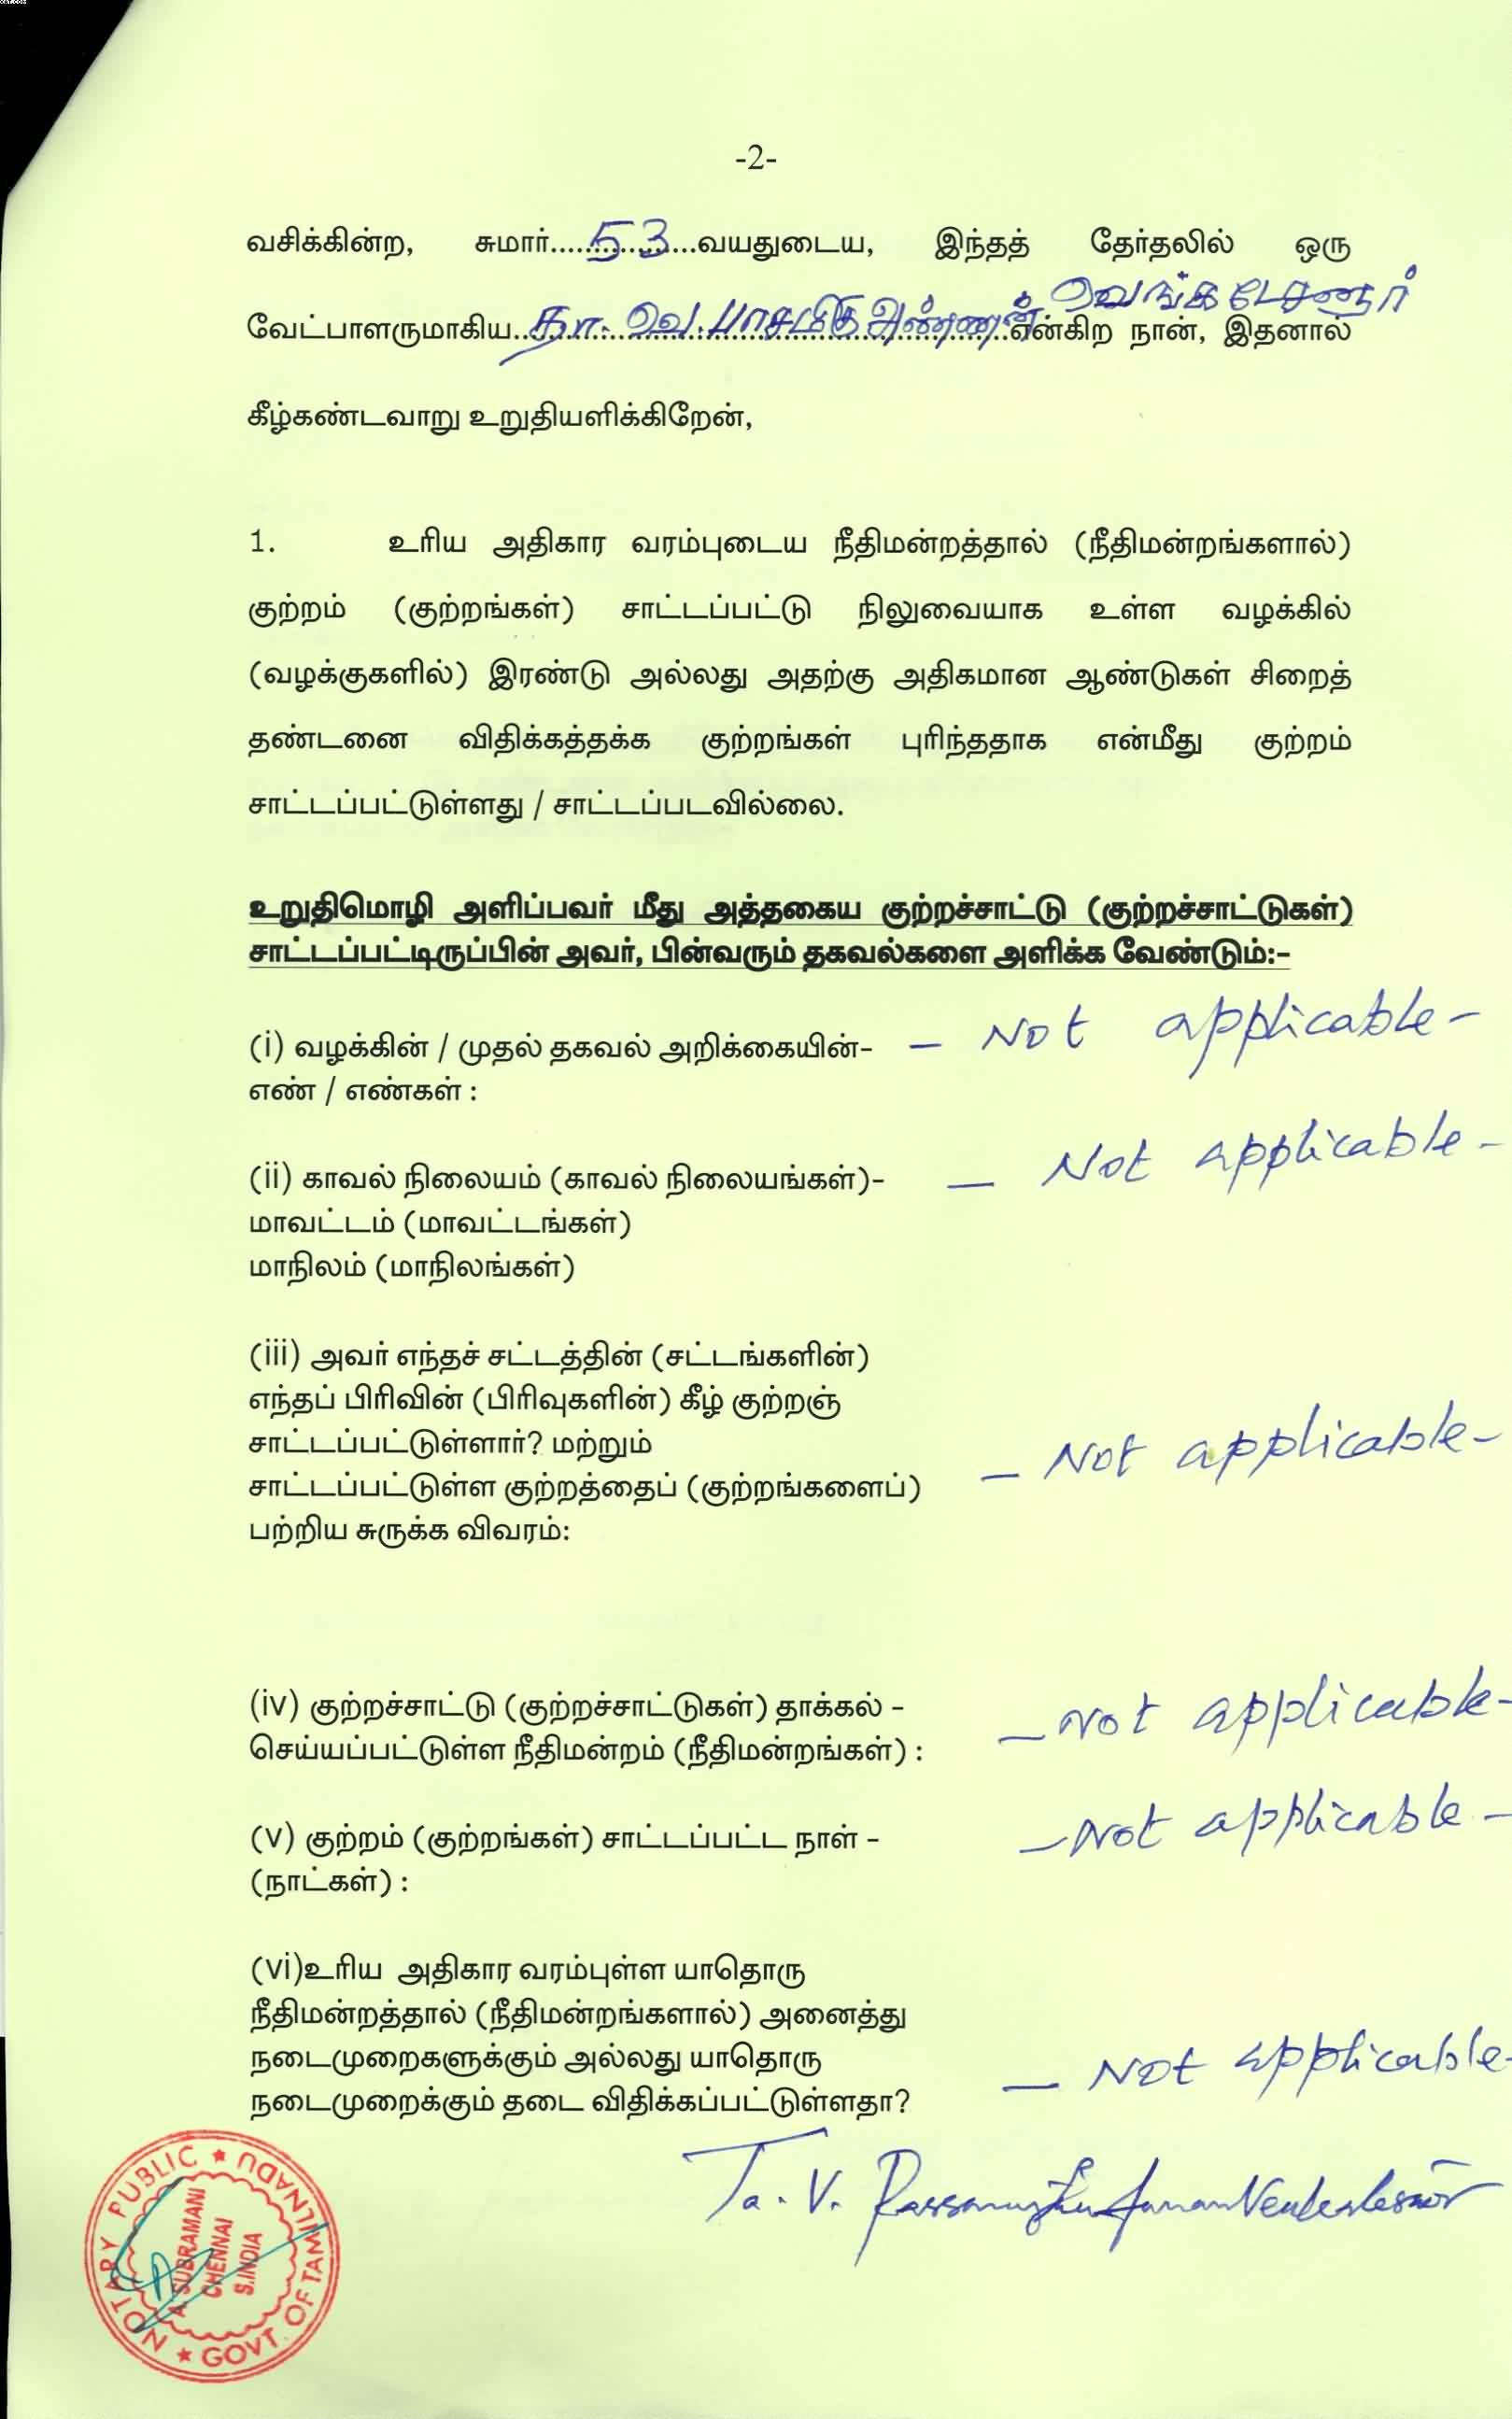 -2-
வசிக்கின்ற, சுமார்......53......வயதுடைய, இந்தத் தேர்தலில் ஒரு
வேங்கடேசனார்
வேட்பாளருமாகிய..தா. வெ. பாசமிகு அண்ணன்..என்கிற நான், இதனால்
கீழ்கண்டவாறு உறுதியளிக்கிறேன்,
1. உரிய அதிகார வரம்புடைய நீதிமன்றத்தால் (நீதிமன்றங்களால்)
குற்றம் (குற்றங்கள்) சாட்டப்பட்டு நிலுவையாக உள்ள வழக்கில்
(வழக்குகளில்) இரண்டு அல்லது அதற்கு அதிகமான ஆண்டுகள் சிறைத்
தண்டனை விதிக்கத்தக்க குற்றங்கள் புரிந்ததாக என்மீது குற்றம்
சாட்டப்பட்டுள்ளது / சாட்டப்படவில்லை.
உறுதிமொழி அளிப்பவர் மீது அத்தகைய குற்றச்சாட்டு (குற்றச்சாட்டுகள்)
சாட்டப்பட்டிருப்பின் அவர், பின்வரும் தகவல்களை அளிக்க வேண்டும்:-
(i) வழக்கின் / முதல் தகவல் அறிக்கையின்- – Not applicable –
எண் / எண்கள் :
(ii) காவல் நிலையம் (காவல் நிலையங்கள்)- – Not applicable –
மாவட்டம் (மாவட்டங்கள்)
மாநிலம் (மாநிலங்கள்)
(iii) அவர் எந்தச் சட்டத்தின் (சட்டங்களின்)
எந்தப் பிரிவின் (பிரிவுகளின்) கீழ் குற்றஞ்
சாட்டப்பட்டுள்ளார்? மற்றும்
சாட்டப்பட்டுள்ள குற்றத்தைப் (குற்றங்களைப்) – Not applicable –
பற்றிய சுருக்க விவரம்:
(iv) குற்றச்சாட்டு (குற்றச்சாட்டுகள்) தாக்கல் - – Not applicable –
செய்யப்பட்டுள்ள நீதிமன்றம் (நீதிமன்றங்கள்) :
(v) குற்றம் (குற்றங்கள்) சாட்டப்பட்ட நாள் - – Not applicable –
(நாட்கள்) :
(vi)உரிய அதிகார வரம்புள்ள யாதொரு
நீதிமன்றத்தால் (நீதிமன்றங்களால்) அனைத்து
நடைமுறைகளுக்கும் அல்லது யாதொரு – Not applicable –
நடைமுறைக்கும் தடை விதிக்கப்பட்டுள்ளதா?
Ta. V.
NOTARY PUBLIC ★ GOVT. OF TAMILNADU ★
A. SUBRAMANI
CHENNAI
S.INDIA